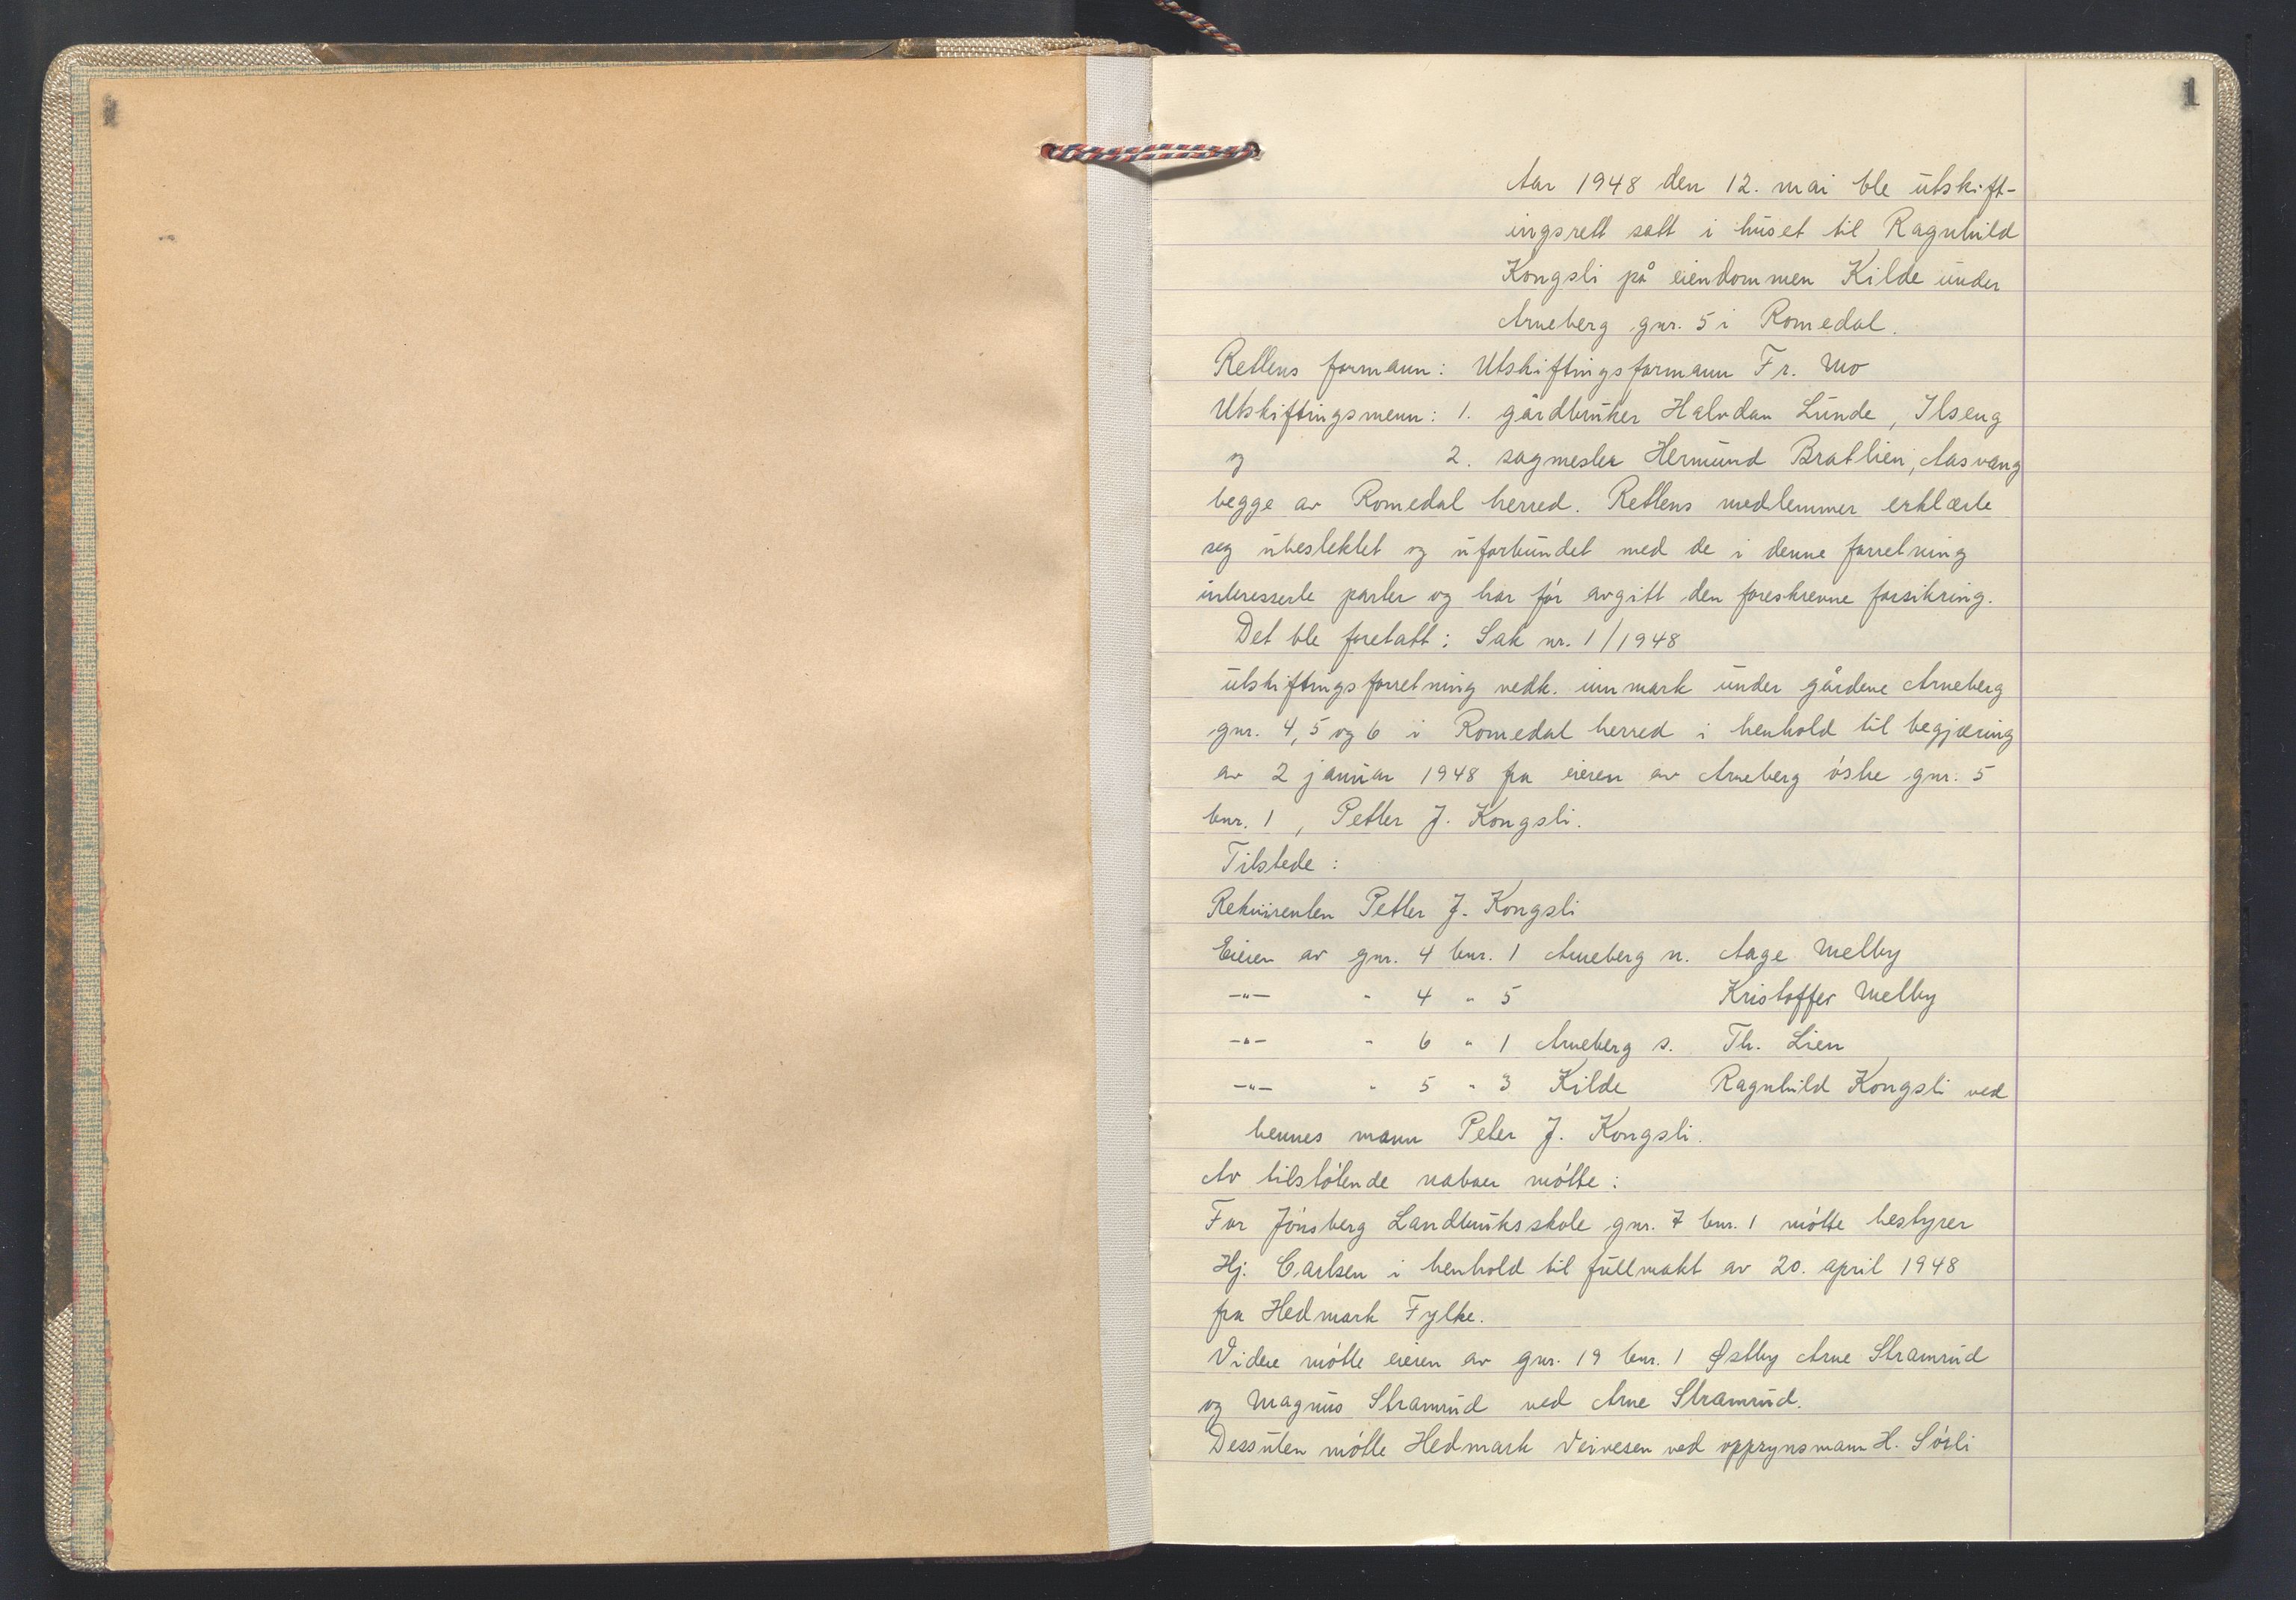 1
Aar 1948 den 12. mai ble utskift-
ingsrett satt i huset til Ragnhild
Kongsli på eiendommen Kilde under
Arneberg gnr. 5 i Romedal.
Rettens formann: Utskiftingsformann Fr. Mo
Utskiftingsmenn: 1. gårdbruker Halvdan Lunde, Ilseng
og 2. sagmester Hermund Bratlien, Aasvang
begge av Romedal herred. Rettens medlemmer erklærte
seg ubeslektet og uforbundet med de i denne forretning
interesserte parter og har før avgitt den foreskrevne forsikring.
Det ble foretatt: Sak nr. 1/1948
utskiftingsforretning vedk. innmark under gårdene Arneberg
gnr. 4, 5 og 6 i Romedal herred i henhold til begjæring
av 2 januar 1948 fra eieren av Arneberg østre gnr. 5
bnr. 1, Petter J. Kongsli.
Tilstede:
Rekvirenten Petter J. Kongsli
Eieren av gnr. 4 bnr. 1 Arneberg n. Aage Melby
-"- " 4 " 5 Kristoffer Melby
-"- " 6 " 1 Arneberg s. Th. Lien
-"- " 5 " 3 Kilde Ragnhild Kongsli ved
hennes mann Peter J. Kongsli.
Av tilstøtende naboer møtte:
For Jønsberg Landbruksskole gnr. 7 bnr. 1 møtte bestyrer
Hj. Carlsen i henhold til fullmakt av 20. april 1948
fra Hedmark Fylke.
Videre møtte eieren av gnr. 19 bnr. 1 Østby Arne Stramrud
og Magnus Stramrud ved Arne Stramrud.
Dessuten møtte Hedmark Veivesen ved oppsynsmann H. Sørli